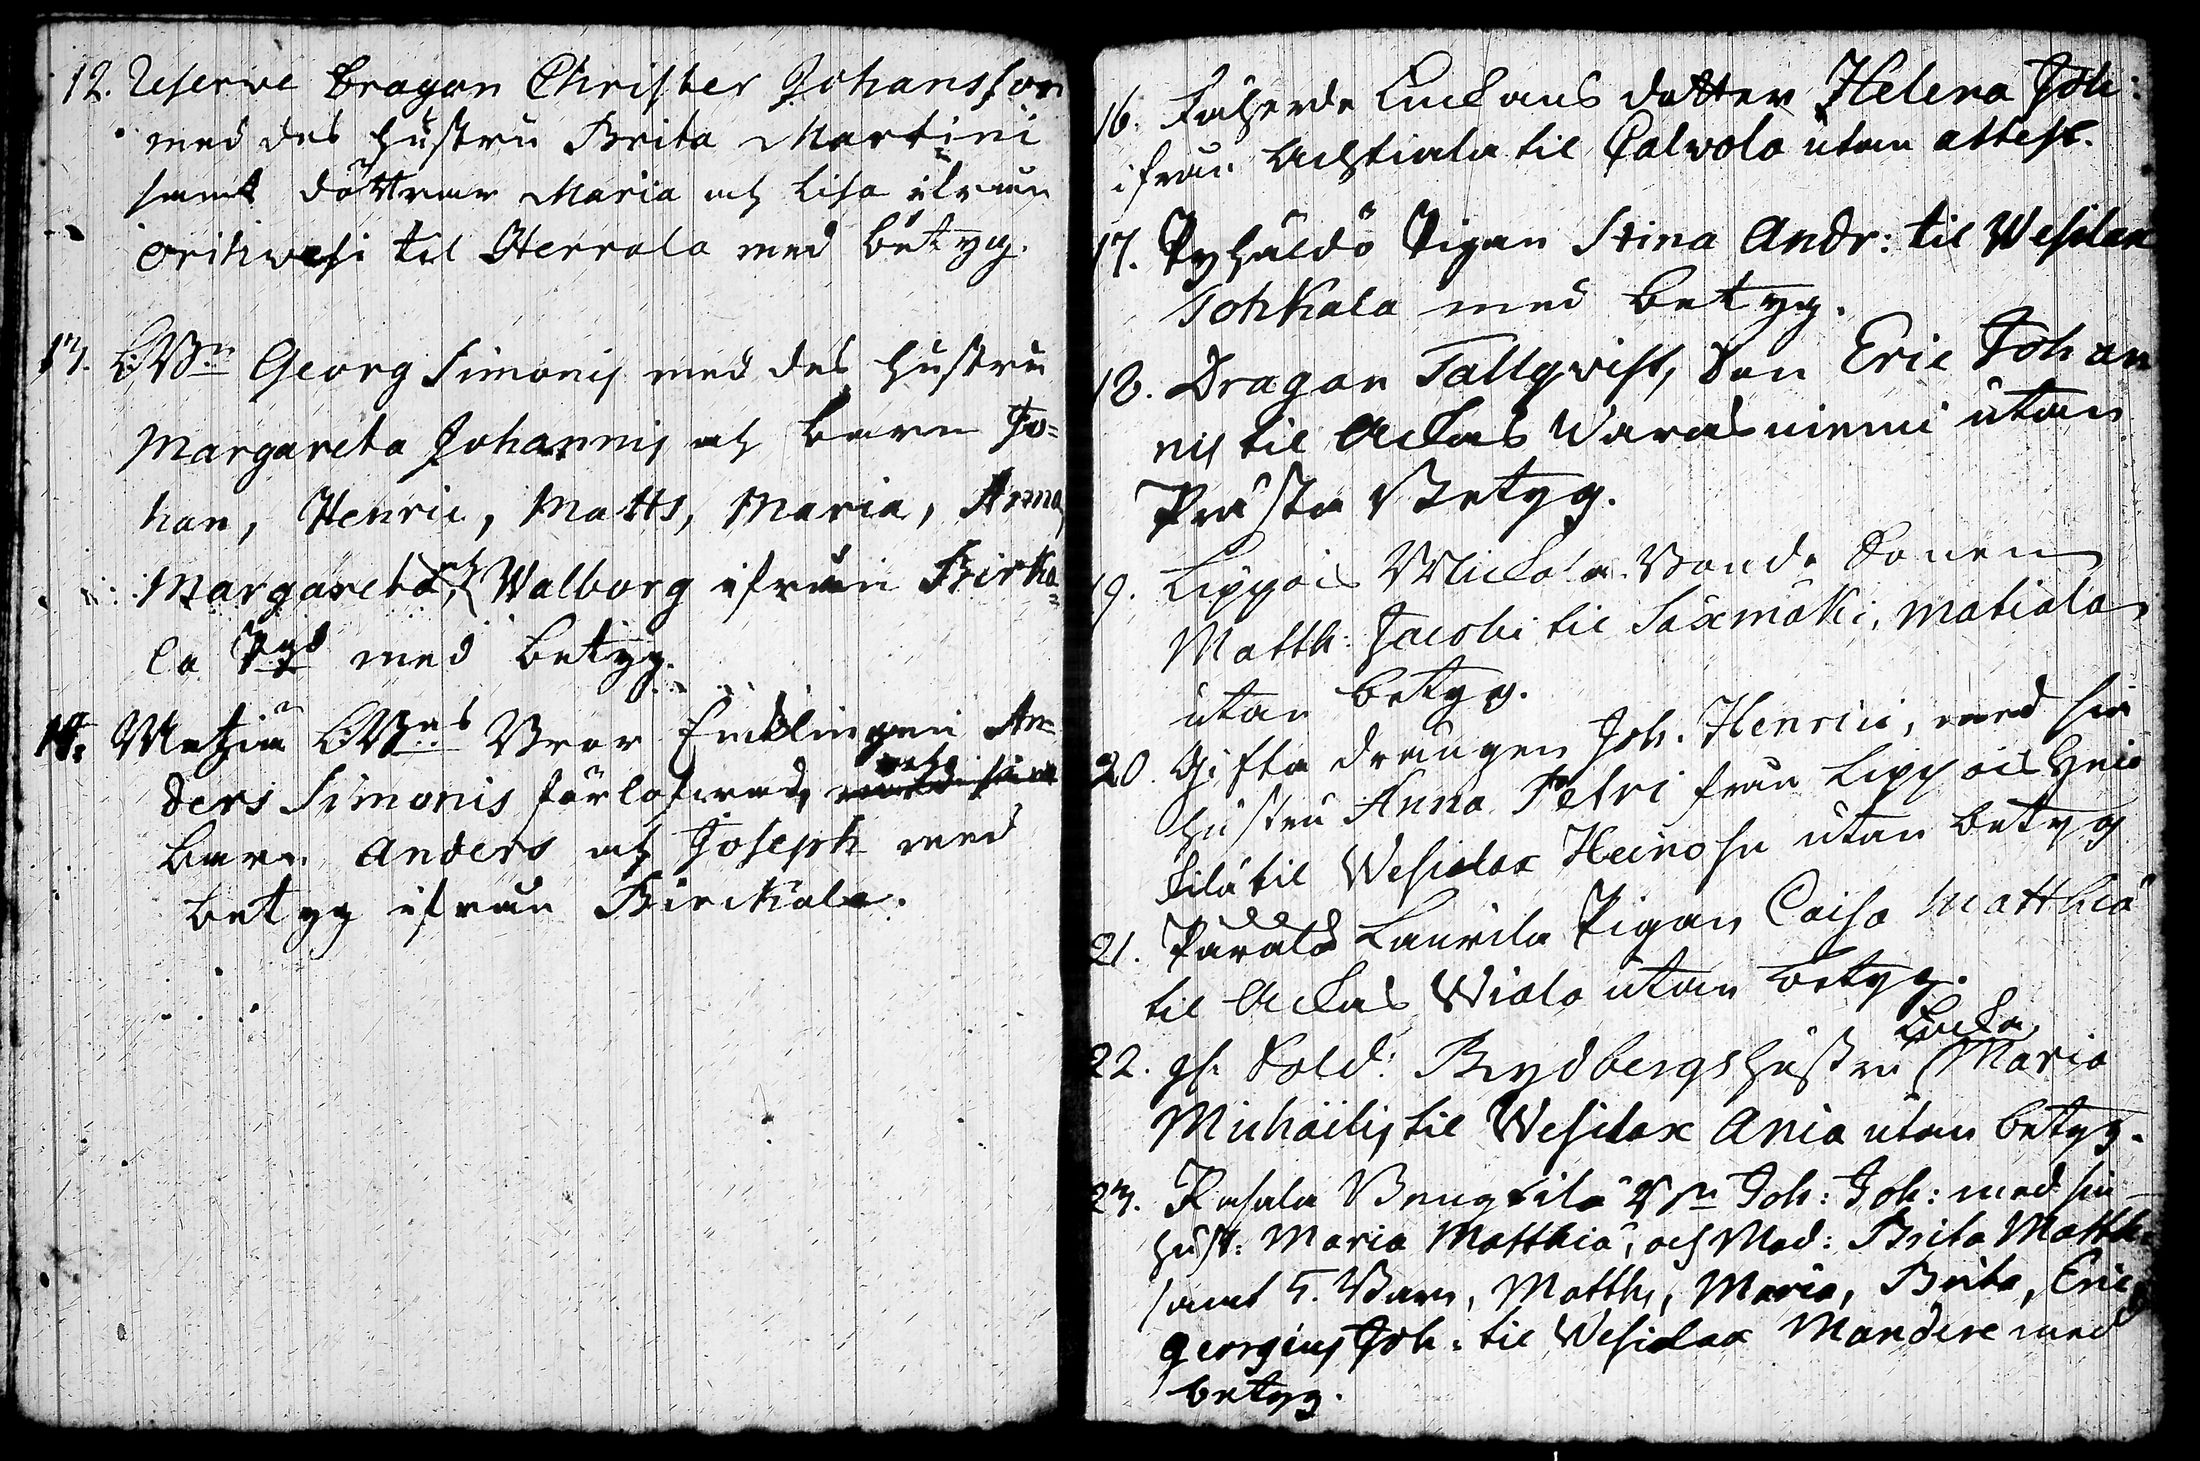 12. Reserve Dragon Christer Johansson
med des hustru Brita Martini
samt döttrar Maria och Lisa ifrån
Orihvesi til Herrala med betyg.
13. Georg Simonis med des hustru
Margareta Johannis och barn Jo=
han, Henric, Matts, Maria, Anna,
Margareta, och Walborg ifrån Birka=
la med betyg.
14. Bror Enklingen An=
ders Simonis förlofvad,
barn Anders och Joseph med
betyg ifrån Birckala.
16. dotter Helena Joh:
ifrån til Calvola utan attest.
17. Pyhäldö Pigan Stina Andr: til Wesilax
Tohkala med betyg.
18. Dragon Tallqvist, Son Eric Johan
nis til Ackas Varasniemi utan
Prästa Betyg.
19. Lippois Mickola Bonde Sonen
Matth: Jacobi til Säxmäki, Matiala
utan betyg.
20. Gifta drängen Joh. Henrici, med sin
hustru Anna Petri från Lippois
til Wesilax Heinosu utan betyg
21. Laurila Pigan Caisa Matthiä
til Ackas Wiala utan betyg.
22. gl. Sold: Rydbergs hustru Enka, Maria
Michaëlis til Wesilax Ania utan betyg.
23. Rasala Bengtilä Joh: Joh: med sin
hust: Maria Matthiä, och Mod: Brita Matth:
samt 5. Barn, Matth, Maria, Brita, Eric,
Georgius Joh: til Wesilax Mandere med
betyg.